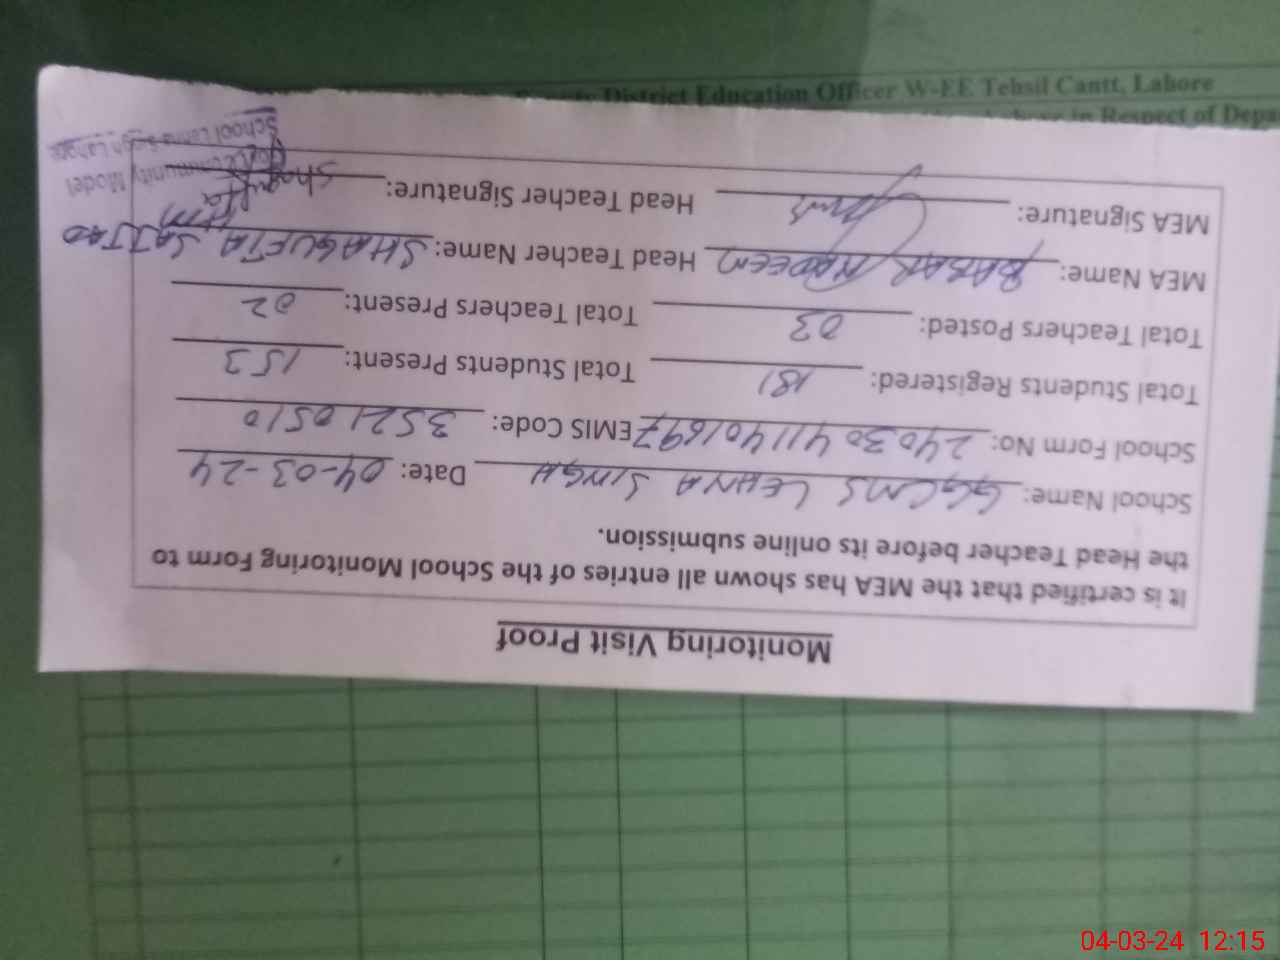 Deputy District Education Officer W-EE Tehsil Cantt, Lahore
in Respect of Depa
Monitoring Visit Proof
It is certified that the MEA has shown all entries of the School Monitoring Form to
the Head Teacher before its online submission.
School Name: GGCMS LEHNA SINGH Date: 04-03-24
School Form No: 24030411401697 EMIS Code: 35210510
Total Students Registered: 181 Total Students Present: 153
Total Teachers Posted: 03 Total Teachers Present: 02
MEA Name: BABAR NADEEM Head Teacher Name: SHAGUFTA SAJJAD
MEA Signature: Head Teacher Signature: Shagufta
Community Model
School Lehna Singh Lahore
04-03-24 12:15